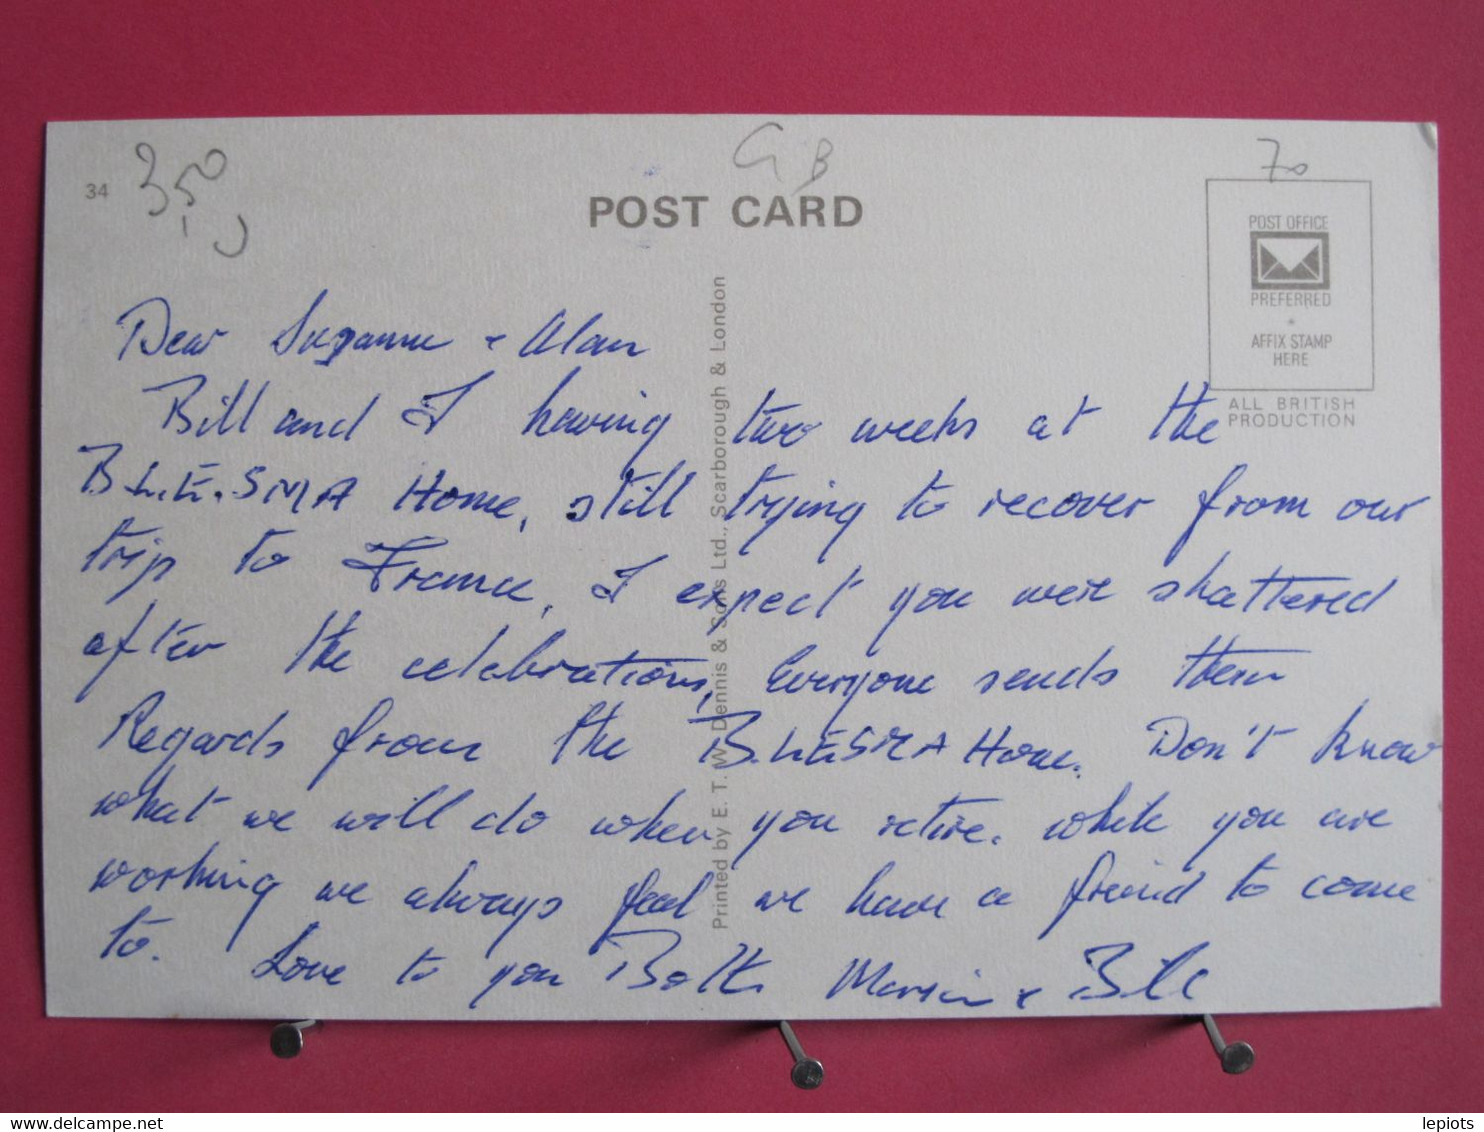 34
3,50
G B
70
POST CARD
POST OFFICE
PREFERRED
AFFIX STAMP
HERE
ALL BRITISH
PRODUCTION
Printed by E. T. W. Dennis & Sons Ltd., Scarborough & London
Dear Suzanne & Alan
Bill and I having two weeks at the
B.L.E.SMA Home, still trying to recover from our
trip to France, I expect you were shattered
after the celebrations, Everyone sends them
Regards from the B.LESMA Home. Don't know
what we will do when you retire. while you are
working we always feel we have a freind to come
to. Love to you Both & Bill
www.delcampe.net
lepiots